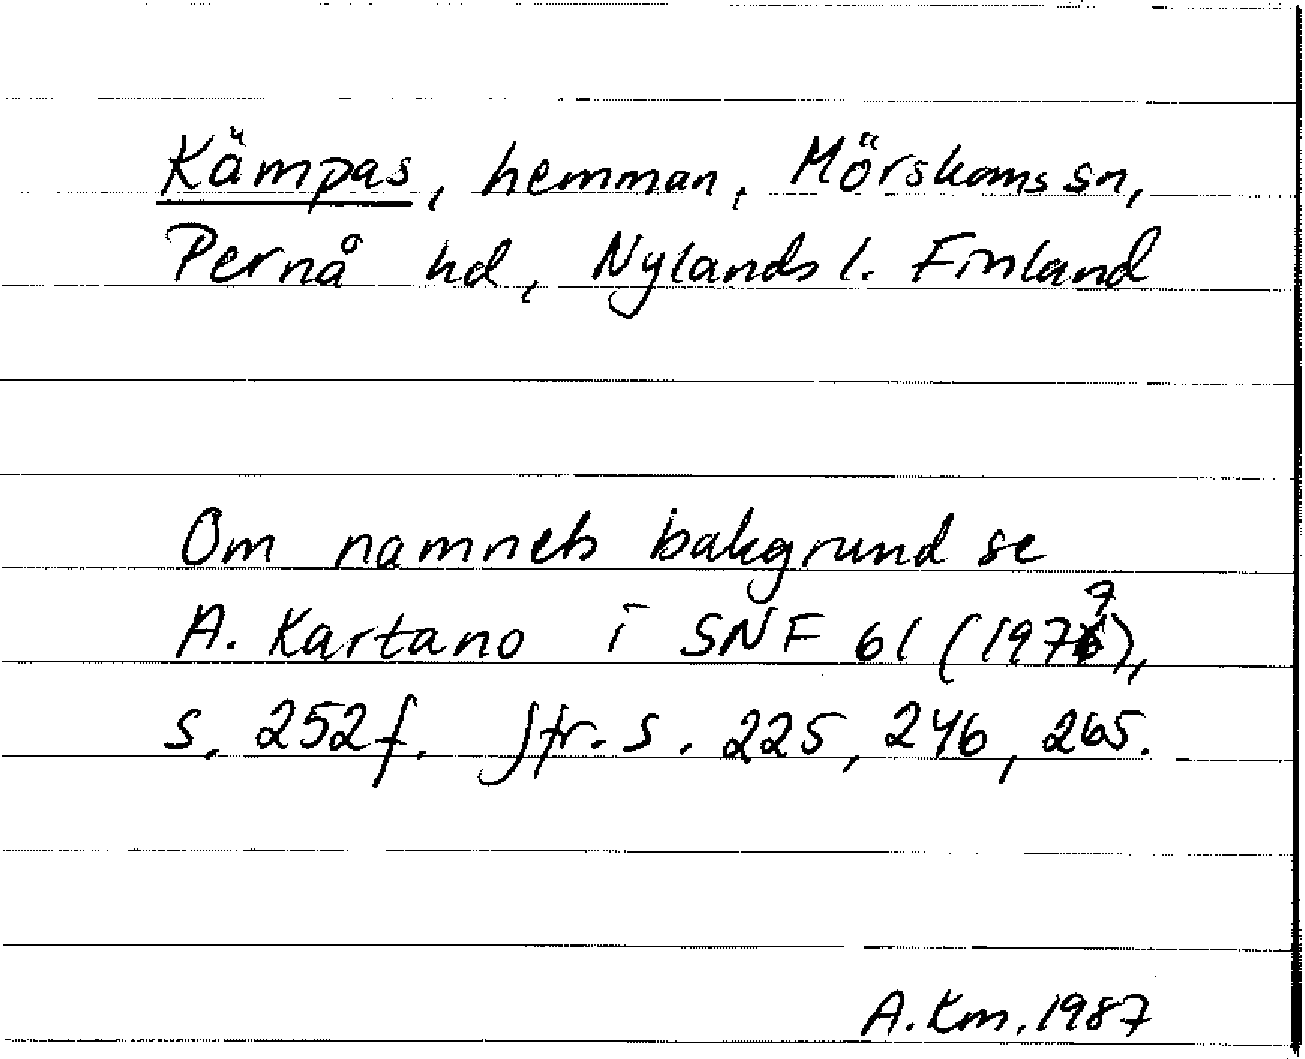 Kämpas, hemman, Mörskoms sn,
Pernå hd, Nylands l. Finland
Om namnets bakgrund se
A. Kartano i SNF 61 (1977),
s. 252f. Jfr. s. 225, 246, 265.
A. Km. 1987